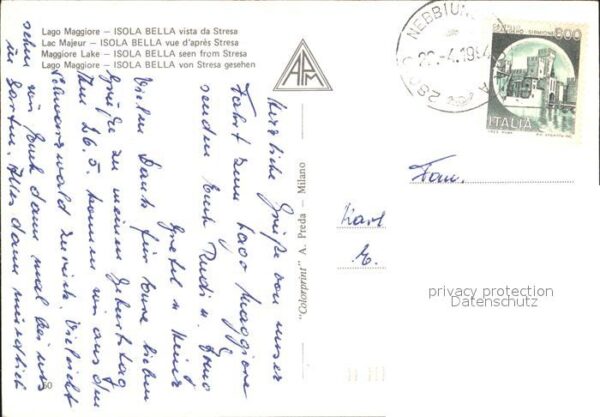 Lago Maggiore — ISOLA BELLA vista da Stresa
Lac Majeur — ISOLA BELLA vue d'après Stresa
Maggiore Lake — ISOLA BELLA seen from Stresa
Lago Maggiore — ISOLA BELLA von Stresa gesehen
APM
NEBBIUNO
-4.1984
280
CASTELLO SIRMIONE
800
ITALIA
Herzliche Grüße von unser
Fahrt zum Lago Maggiore
senden Euch Rudi u. Erna
Gretel u Heinz
Vielen Dank für Eure lieben
Grüße zu meinem Geburtstag
Am 26.5. kommen wir aus dem
Schwarzwald zurück. Vieleicht
sehen wir Euch dann mal bei uns
im Garten. Alles dann mündlich
"Colorprint" A. Preda — Milano
Fam.
Karl
E.
privacy protection
Datenschutz
60